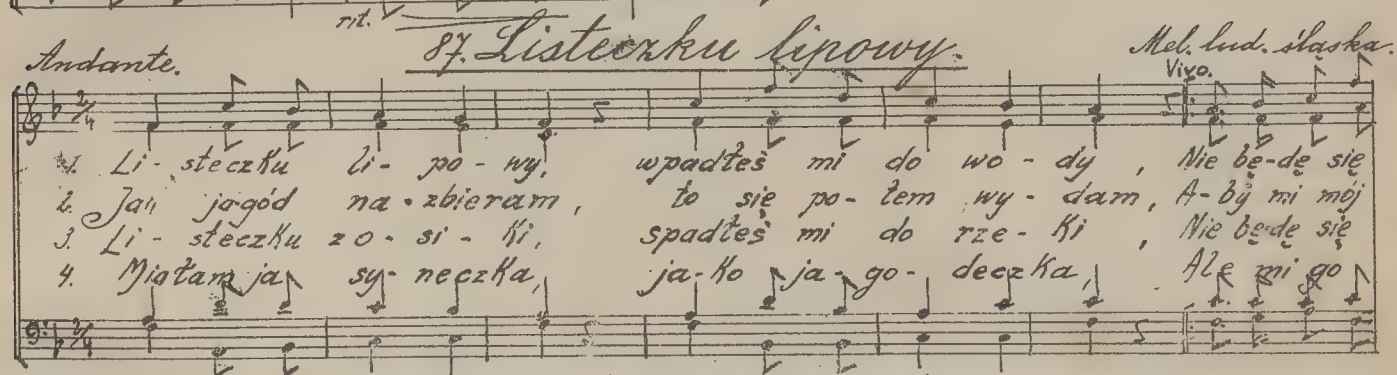 rit.
87. Listeczku lipowy.
Andante.
Mel. lud. śląska.
Vivo.
2/4
1. Li - steczku li - po - wy, wpadłeś mi do wo - dy, Nie bę-dę się
2. jagód na - zbieram, to się po - tem wy - dam, A - by mi mój
3. Li - steczku z o - si - ki, spadłeś mi do rze - ki, Nie bę-dę się
4. Miałam ja sy - neczka, ja - ko ja - go - deczka, Ale mi go
2/4